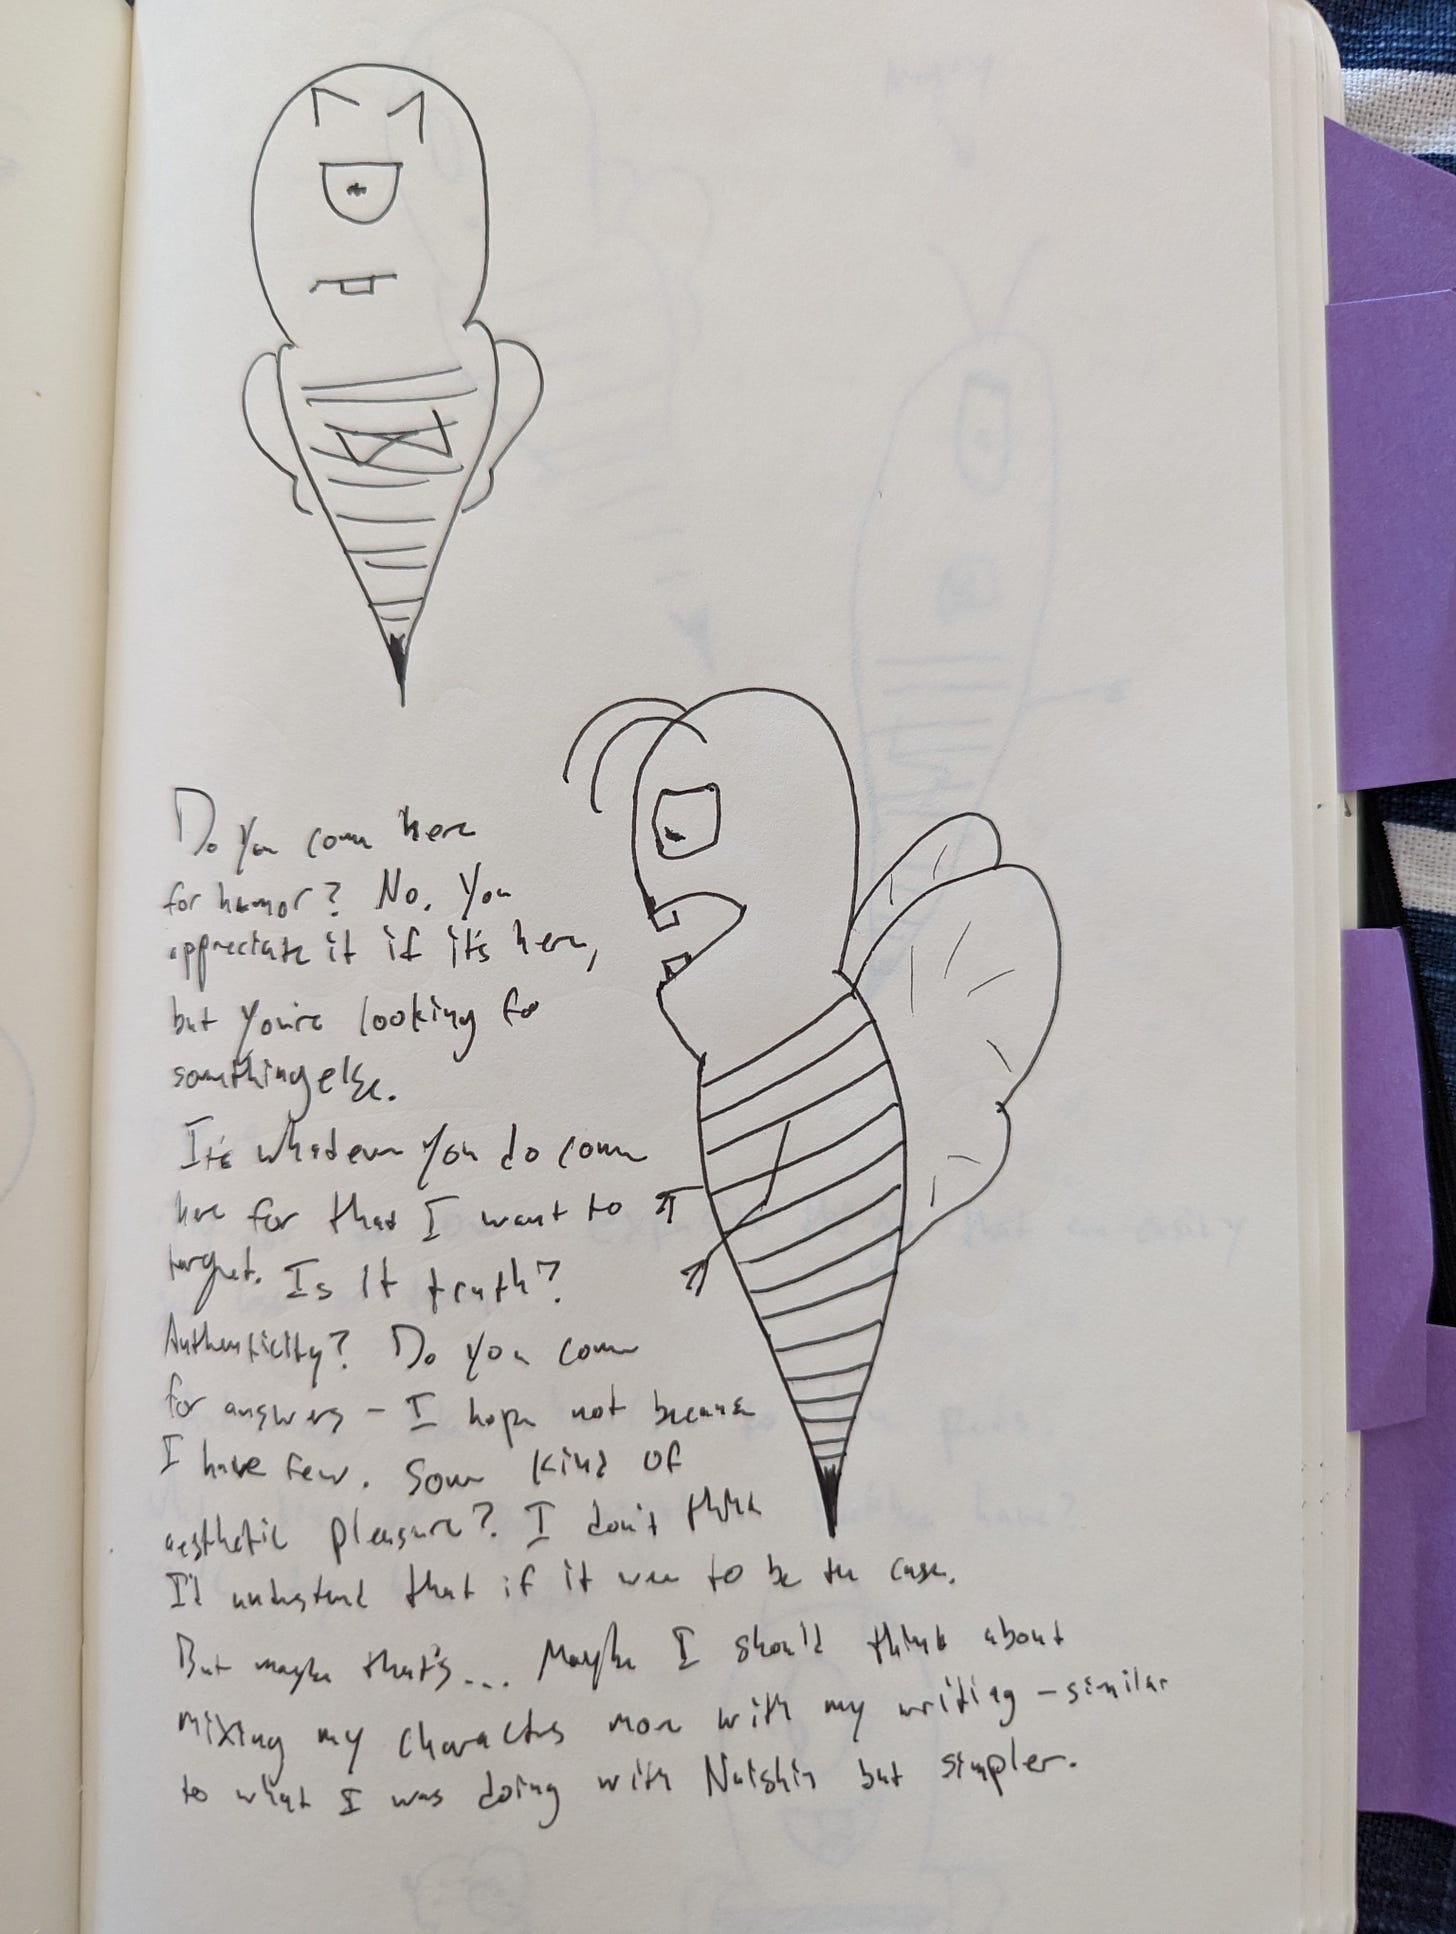 Do you come here
for humor? No. You
appreciate it if it's here,
but you're looking for
something else.
It's whatever you do come
here for that I want to
target. Is it truth?
Authenticity? Do you come
for answers - I hope not because
I have few. Some kind of
aesthetic pleasure? I don't think
I'd understand that if it were to be the case.
But maybe that's... Maybe I should think about
mixing my characters more with my writing - similar
to what I was doing with but simpler.